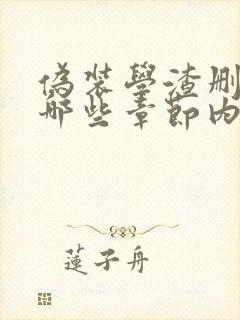 偽裝學渣刪
哪些章節內
蓮子舟